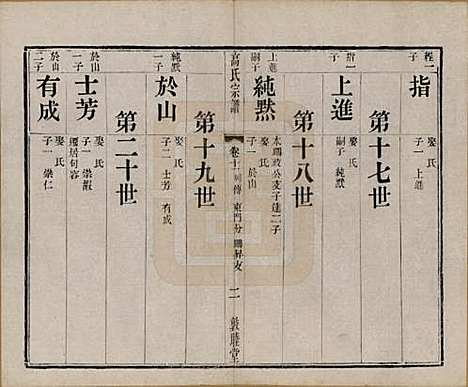 程一
子
指
子一 上進
第十七世
指一
子
上進
娶 氏
嗣子 純默
第十八世
上進
嗣子
純默
娶 氏
子一 於山
高氏宗譜
卷十 列傳 東門分
二
敦睦堂
第十九世
純默
子
於山
娶 氏
子二 士芳 有成
第二十世
於山
一子
士芳
娶 氏
子一 崇嘏
遷居句容
於山
二子
有成
娶 氏
子一 崇仁